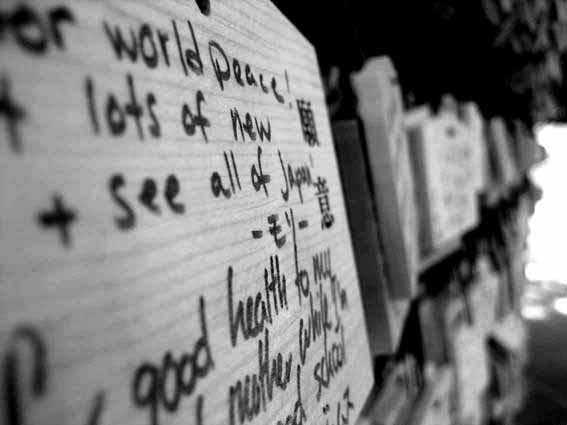 for world peace!
+ lots of new
+ see all of Japan!
願
意
good health to my
mother while I'm
school